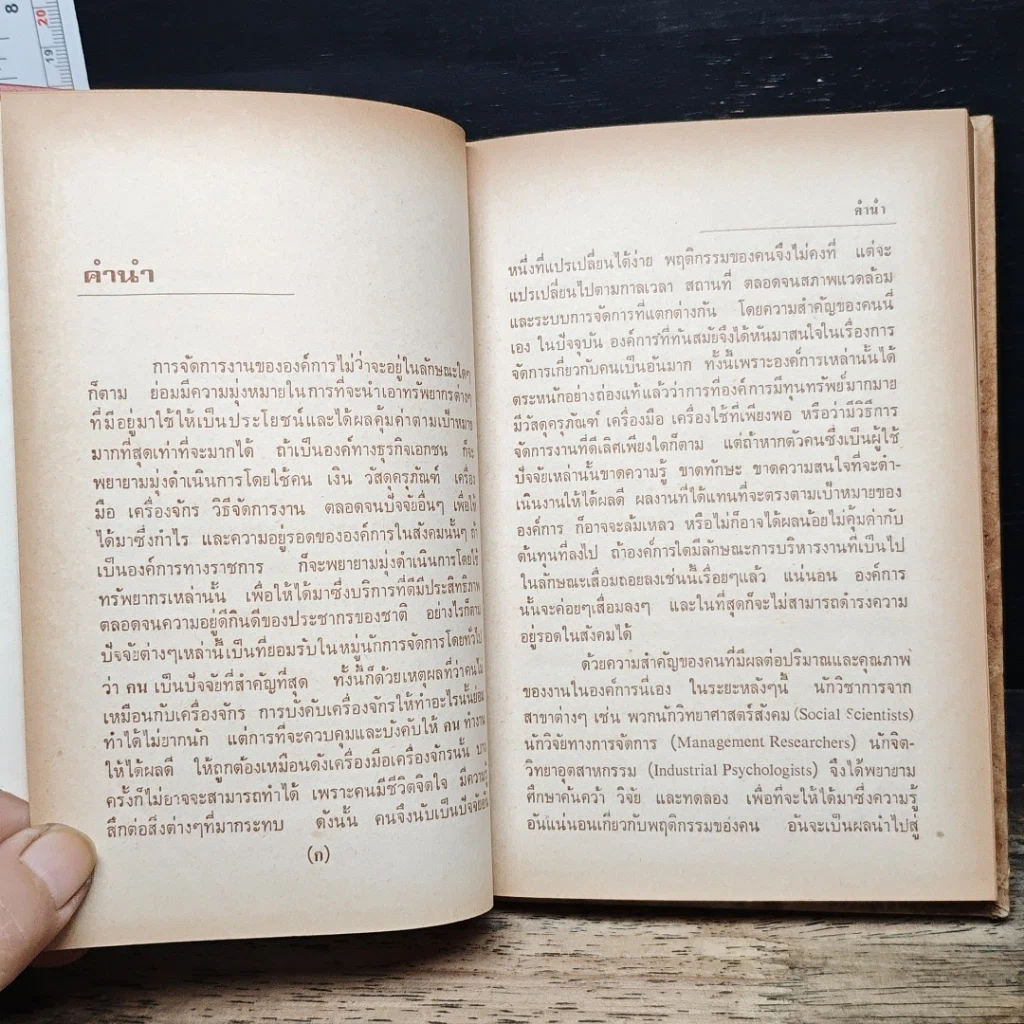 8
20
19
คำนำ
การจัดการงานขององค์การไม่ว่าจะอยู่ในลักษณะใดๆ
ก็ตาม ย่อมมีความมุ่งหมายในการที่จะนำเอาทรัพยากรต่างๆ
ที่มีอยู่มาใช้ให้เป็นประโยชน์และได้ผลคุ้มค่าตามเป้าหมาย
มากที่สุดเท่าที่จะมากได้ ถ้าเป็นองค์ทางธุรกิจเอกชน ก็จะ
พยายามมุ่งดำเนินการโดยใช้คน เงิน วัสดุครุภัณฑ์ เครื่อง
มือ เครื่องจักร วิธีจัดการงาน ตลอดจนปัจจัยอื่นๆ เพื่อให้
ได้มาซึ่งกำไร และความอยู่รอดขององค์การในสังคมนั้นๆ ถ้า
เป็นองค์การทางราชการ ก็จะพยายามมุ่งดำเนินการโดยใช้
ทรัพยากรเหล่านั้น เพื่อให้ได้มาซึ่งบริการที่ดีมีประสิทธิภาพ
ตลอดจนความอยู่ดีกินดีของประชากรของชาติ อย่างไรก็ตาม
ปัจจัยต่างๆเหล่านี้เป็นที่ยอมรับในหมู่นักการจัดการโดยทั่วไป
ว่า คน เป็นปัจจัยที่สำคัญที่สุด ทั้งนี้ก็ด้วยเหตุผลที่ว่าคนไม่
เหมือนกับเครื่องจักร การบังคับเครื่องจักรให้ทำอะไรนั้นย่อม
ทำได้ไม่ยากนัก แต่การที่จะควบคุมและบังคับให้ คน ทำงาน
ให้ได้ผลดี ให้ถูกต้องเหมือนดังเครื่องมือเครื่องจักรนั้น บาง
ครั้งก็ไม่อาจจะสามารถทำได้ เพราะคนมีชีวิตจิตใจ มีความรู้
สึกต่อสิ่งต่างๆที่มากระทบ ดังนั้น คนจึงนับเป็นปัจจัยอัน
(ก)
คำนำ
หนึ่งที่แปรเปลี่ยนได้ง่าย พฤติกรรมของคนจึงไม่คงที่ แต่จะ
แปรเปลี่ยนไปตามกาลเวลา สถานที่ ตลอดจนสภาพแวดล้อม
และระบบการจัดการที่แตกต่างกัน โดยความสำคัญของคนนี่
เอง ในปัจจุบัน องค์การที่ทันสมัยจึงได้หันมาสนใจในเรื่องการ
จัดการเกี่ยวกับคนเป็นอันมาก ทั้งนี้เพราะองค์การเหล่านั้นได้
ตระหนักอย่างถ่องแท้แล้วว่าการที่องค์การมีทุนทรัพย์มากมาย
มีวัสดุครุภัณฑ์ เครื่องมือ เครื่องใช้ที่เพียงพอ หรือว่ามีวิธีการ
จัดการงานที่ดีเลิศเพียงใดก็ตาม แต่ถ้าหากตัวคนซึ่งเป็นผู้ใช้
ปัจจัยเหล่านั้นขาดความรู้ ขาดทักษะ ขาดความสนใจที่จะดำ-
เนินงานให้ได้ผลดี ผลงานที่ได้แทนที่จะตรงตามเป้าหมายของ
องค์การ ก็อาจจะล้มเหลว หรือไม่ก็อาจได้ผลน้อยไม่คุ้มค่ากับ
ต้นทุนที่ลงไป ถ้าองค์การใดมีลักษณะการบริหารงานที่เป็นไป
ในลักษณะเสื่อมถอยลงเช่นนี้เรื่อยๆแล้ว แน่นอน องค์การ
นั้นจะค่อยๆเสื่อมลงๆ และในที่สุดก็จะไม่สามารถดำรงความ
อยู่รอดในสังคมได้
ด้วยความสำคัญของคนที่มีผลต่อปริมาณและคุณภาพ
ของงานในองค์การนี่เอง ในระยะหลังๆนี้ นักวิชาการจาก
สาขาต่างๆ เช่น พวกนักวิทยาศาสตร์สังคม (Social Scientists)
นักวิจัยทางการจัดการ (Management Researchers) นักจิต-
วิทยาอุตสาหกรรม (Industrial Psychologists) จึงได้พยายาม
ศึกษาค้นคว้า วิจัย และทดลอง เพื่อที่จะให้ได้มาซึ่งความรู้
อันแน่นอนเกี่ยวกับพฤติกรรมของคน อันจะเป็นผลนำไปสู่